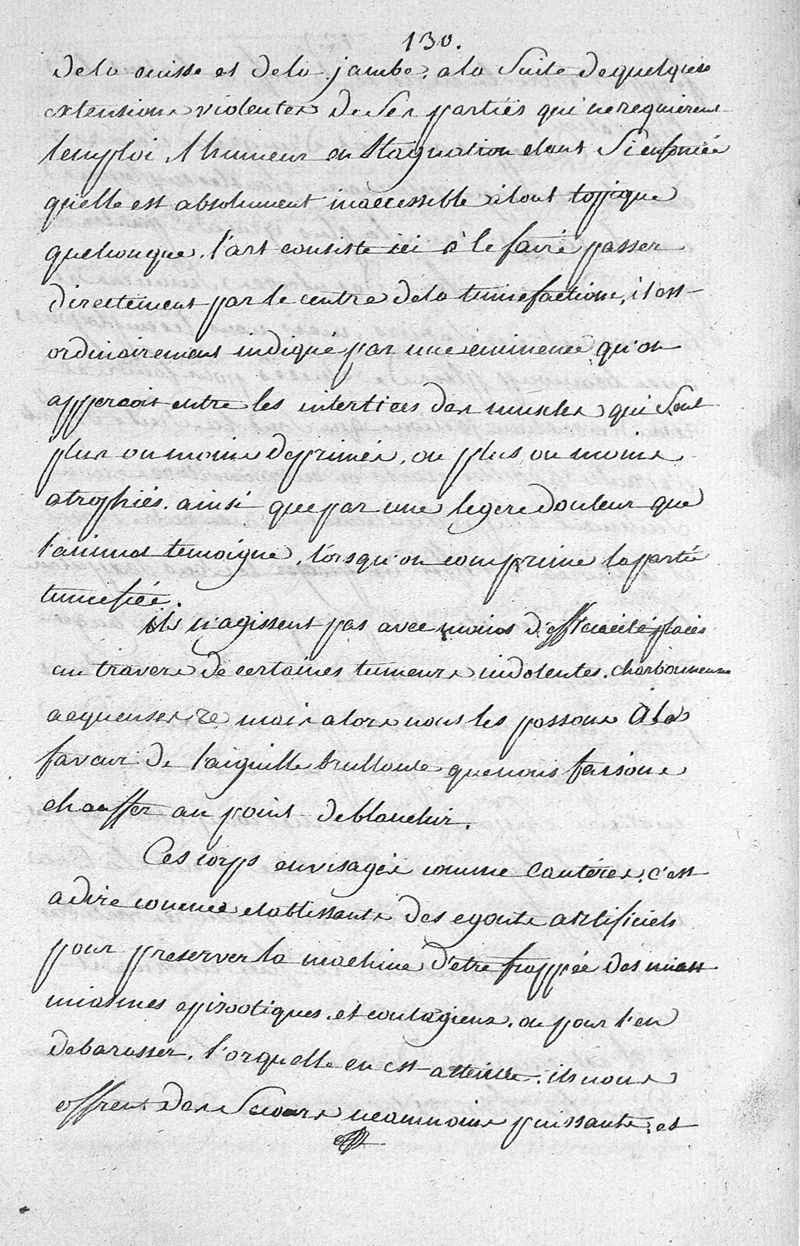 130.
de la cuisse et de la jambe, a la suite de quelques
extensions violentes de ses parties qui ne requierent
lemploi, l'humeur en stagnation etant si enfoncée
qu'elle est absolument inaccessible à tout topique
quelconque, l'art consiste ici à le faire passer
directement par le centre de la tumefaction, il est
ordinairement indiqué par une eminence qu'on
apperçoit entre les intertices des muscles qui sont
plus ou moins deprimés, ou plus ou moins
atrophiés. ainsi que par une legere douleur que
l'animal temoigne, lorsqu'on comprime la partie
tumefiée.
ils n'agissent pas avec moins d'efficacité placés
au travers de certaines tumeurs indolentes, charbonneuses
aequeuses &c mais alors nous les passons à la
faveur de l'aiguille brullante que nous faisons
chauffer au point de blanchir.
Ces corps envisagés comme cauteres, c'est
a dire comme etablissants des egouts artificiels
pour preserver la machine d'etre frappée des mias
miasmes epizootiques, et contagieux, ou pour l'en
debarasser, l'orquelle en est atteinte, ils nous
offrent des secours neanmoins puissants, et